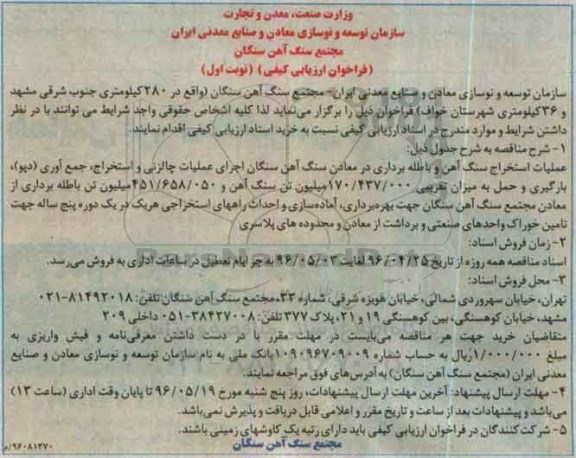 وزارت صنعت، معدن و تجارت
سازمان توسعه و نوسازی معادن و صنایع معدنی ایران
مجتمع سنگ آهن سنگان
(فراخوان ارزیابی کیفی) (نوبت اول)
سازمان توسعه و نوسازی معادن و صنایع معدنی ایران- مجتمع سنگ آهن سنگان (واقع در ۲۸۰کیلومتری جنوب شرقی مشهد
و ۳۶کیلومتری شهرستان خواف) فراخوان ذیل را برگزار می‌نماید لذا کلیه اشخاص حقوقی واجد شرایط می توانند با در نظر
داشتن شرایط و موارد مندرج در اسناد ارزیابی کیفی نسبت به خرید اسناد ارزیابی کیفی اقدام نمایند.
۱- شرح مناقصه به شرح جدول ذیل:
عملیات استخراج سنگ آهن و باطله برداری در معادن سنگ آهن سنگان اجرای عملیات چالزنی و استخراج، جمع آوری (دپو)،
بارگیری و حمل به میزان تقریبی ۱۷۰/۴۳۷/۰۰۰میلیون تن سنگ آهن و ۴۵۱/۶۵۸/۰۵۰میلیون تن باطله برداری از
معادن مجتمع سنگ آهن سنگان جهت بهره‌برداری، آماده‌سازی و احداث راههای استخراجی هریک در یک دوره پنج ساله جهت
تامین خوراک واحدهای صنعتی و برداشت از معادن و محدوده های پلاسری
۲- زمان فروش اسناد:
اسناد مناقصه همه روزه از تاریخ ۹۶/۰۴/۲۵ لغایت ۹۶/۰۵/۰۳ به جز ایام تعطیل در ساعات اداری به فروش می‌رسد.
۳- محل فروش اسناد:
تهران، خیابان سهروردی شمالی، خیابان هویزه شرقی، شماره ۳۳، مجتمع سنگ آهن سنگان تلفن: ۸۱۴۹۲۰۱۸-۰۲۱
مشهد، خیابان کوهسنگی، بین کوهسنگی ۱۹ و ۲۱، پلاک ۳۷۷ تلفن: ۳۸۴۲۷۰۰۸-۰۵۱ داخلی ۲۰۹
متقاضیان خرید جهت هر مناقصه می‌بایست در مهلت مقرر با در دست داشتن معرفی‌نامه و فیش واریزی به
مبلغ ۱/۰۰۰/۰۰۰ریال به حساب شماره ۰۱۰۹۰۹۶۷۰۹۰۰۹بانک ملی به نام سازمان توسعه و نوسازی معادن و صنایع
معدنی ایران (مجتمع سنگ آهن سنگان) به آدرس‌های فوق مراجعه نمایند.
۴- مهلت ارسال پیشنهاد: آخرین مهلت ارسال پیشنهادات، روز پنج شنبه مورخ ۹۶/۰۵/۱۹ تا پایان وقت اداری (ساعت ۱۳)
می‌باشد و پیشنهادات بعد از ساعت و تاریخ مقرر و اعلامی قابل دریافت و پذیرش نمی‌باشد.
۵- شرکت کنندگان در فراخوان ارزیابی کیفی باید دارای رتبه یک کاوشهای زمینی باشند.
مجتمع سنگ آهن سنگان
۹۶۰۸۱۳۷۰/م